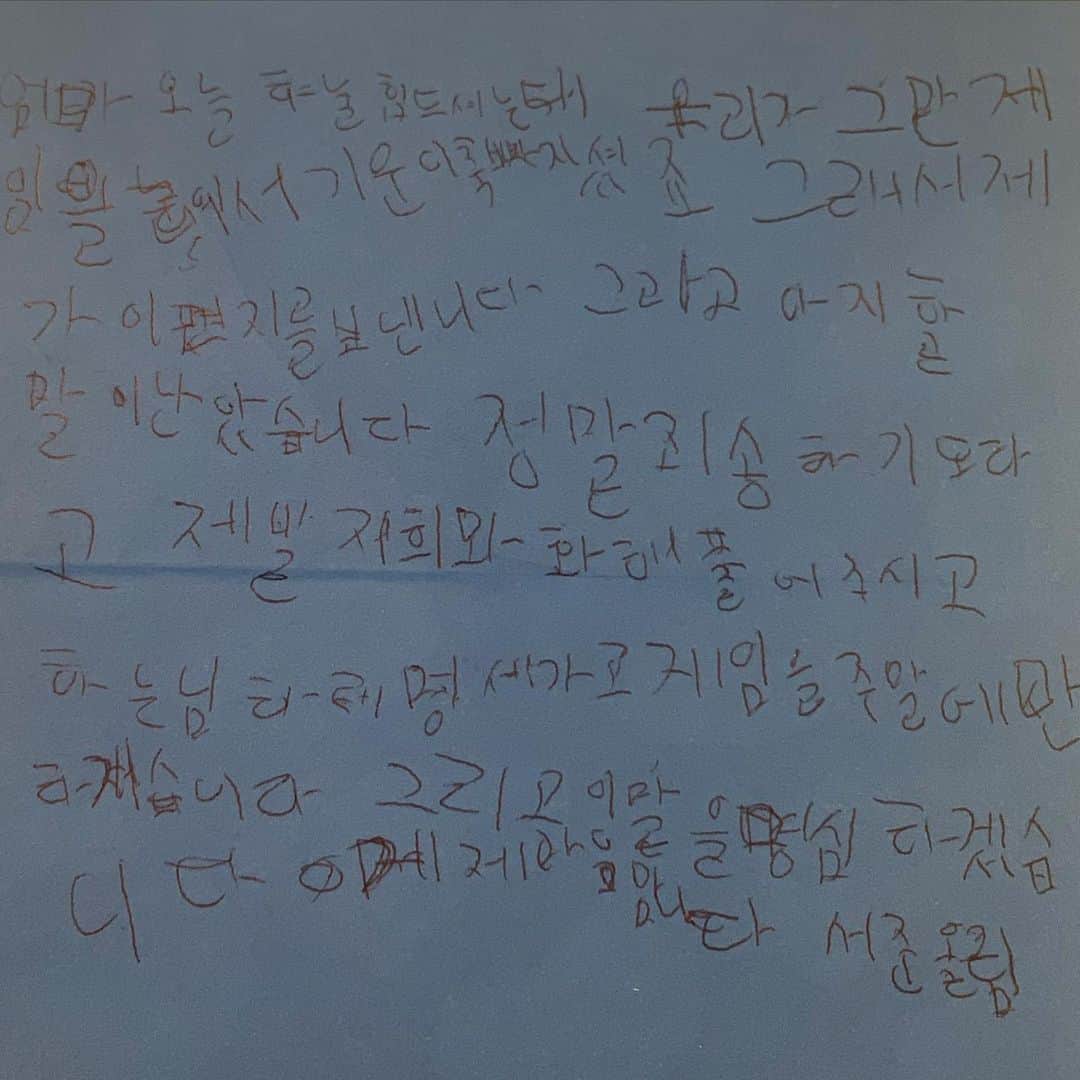 엄마 오늘 하날 힘드셔는데 우리가 그만 게
임을 놀애서 기운이 쭉빠지셨죠 그래서 제
가 이편지를보낸니다 그라고 아지 할
말이난았습니다 정말 죄송하기도하
고 제발 저희와 화해 풀어주시고
하는님 하레 명세가고 게임을 주말에만
하겠습니다 그리고 이말을 명심 하겠심
니다 이제 제 마음 입니다 서준올림